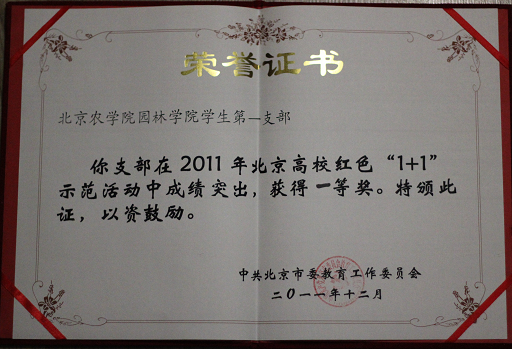 荣誉证书
北京农学院园林学院学生第一支部
你支部在 2011 年北京高校红色“1+1”
示范活动中成绩突出，获得一等奖。特颁此
证，以资鼓励。
中共北京市委教育工作委员会
二〇一一年十二月